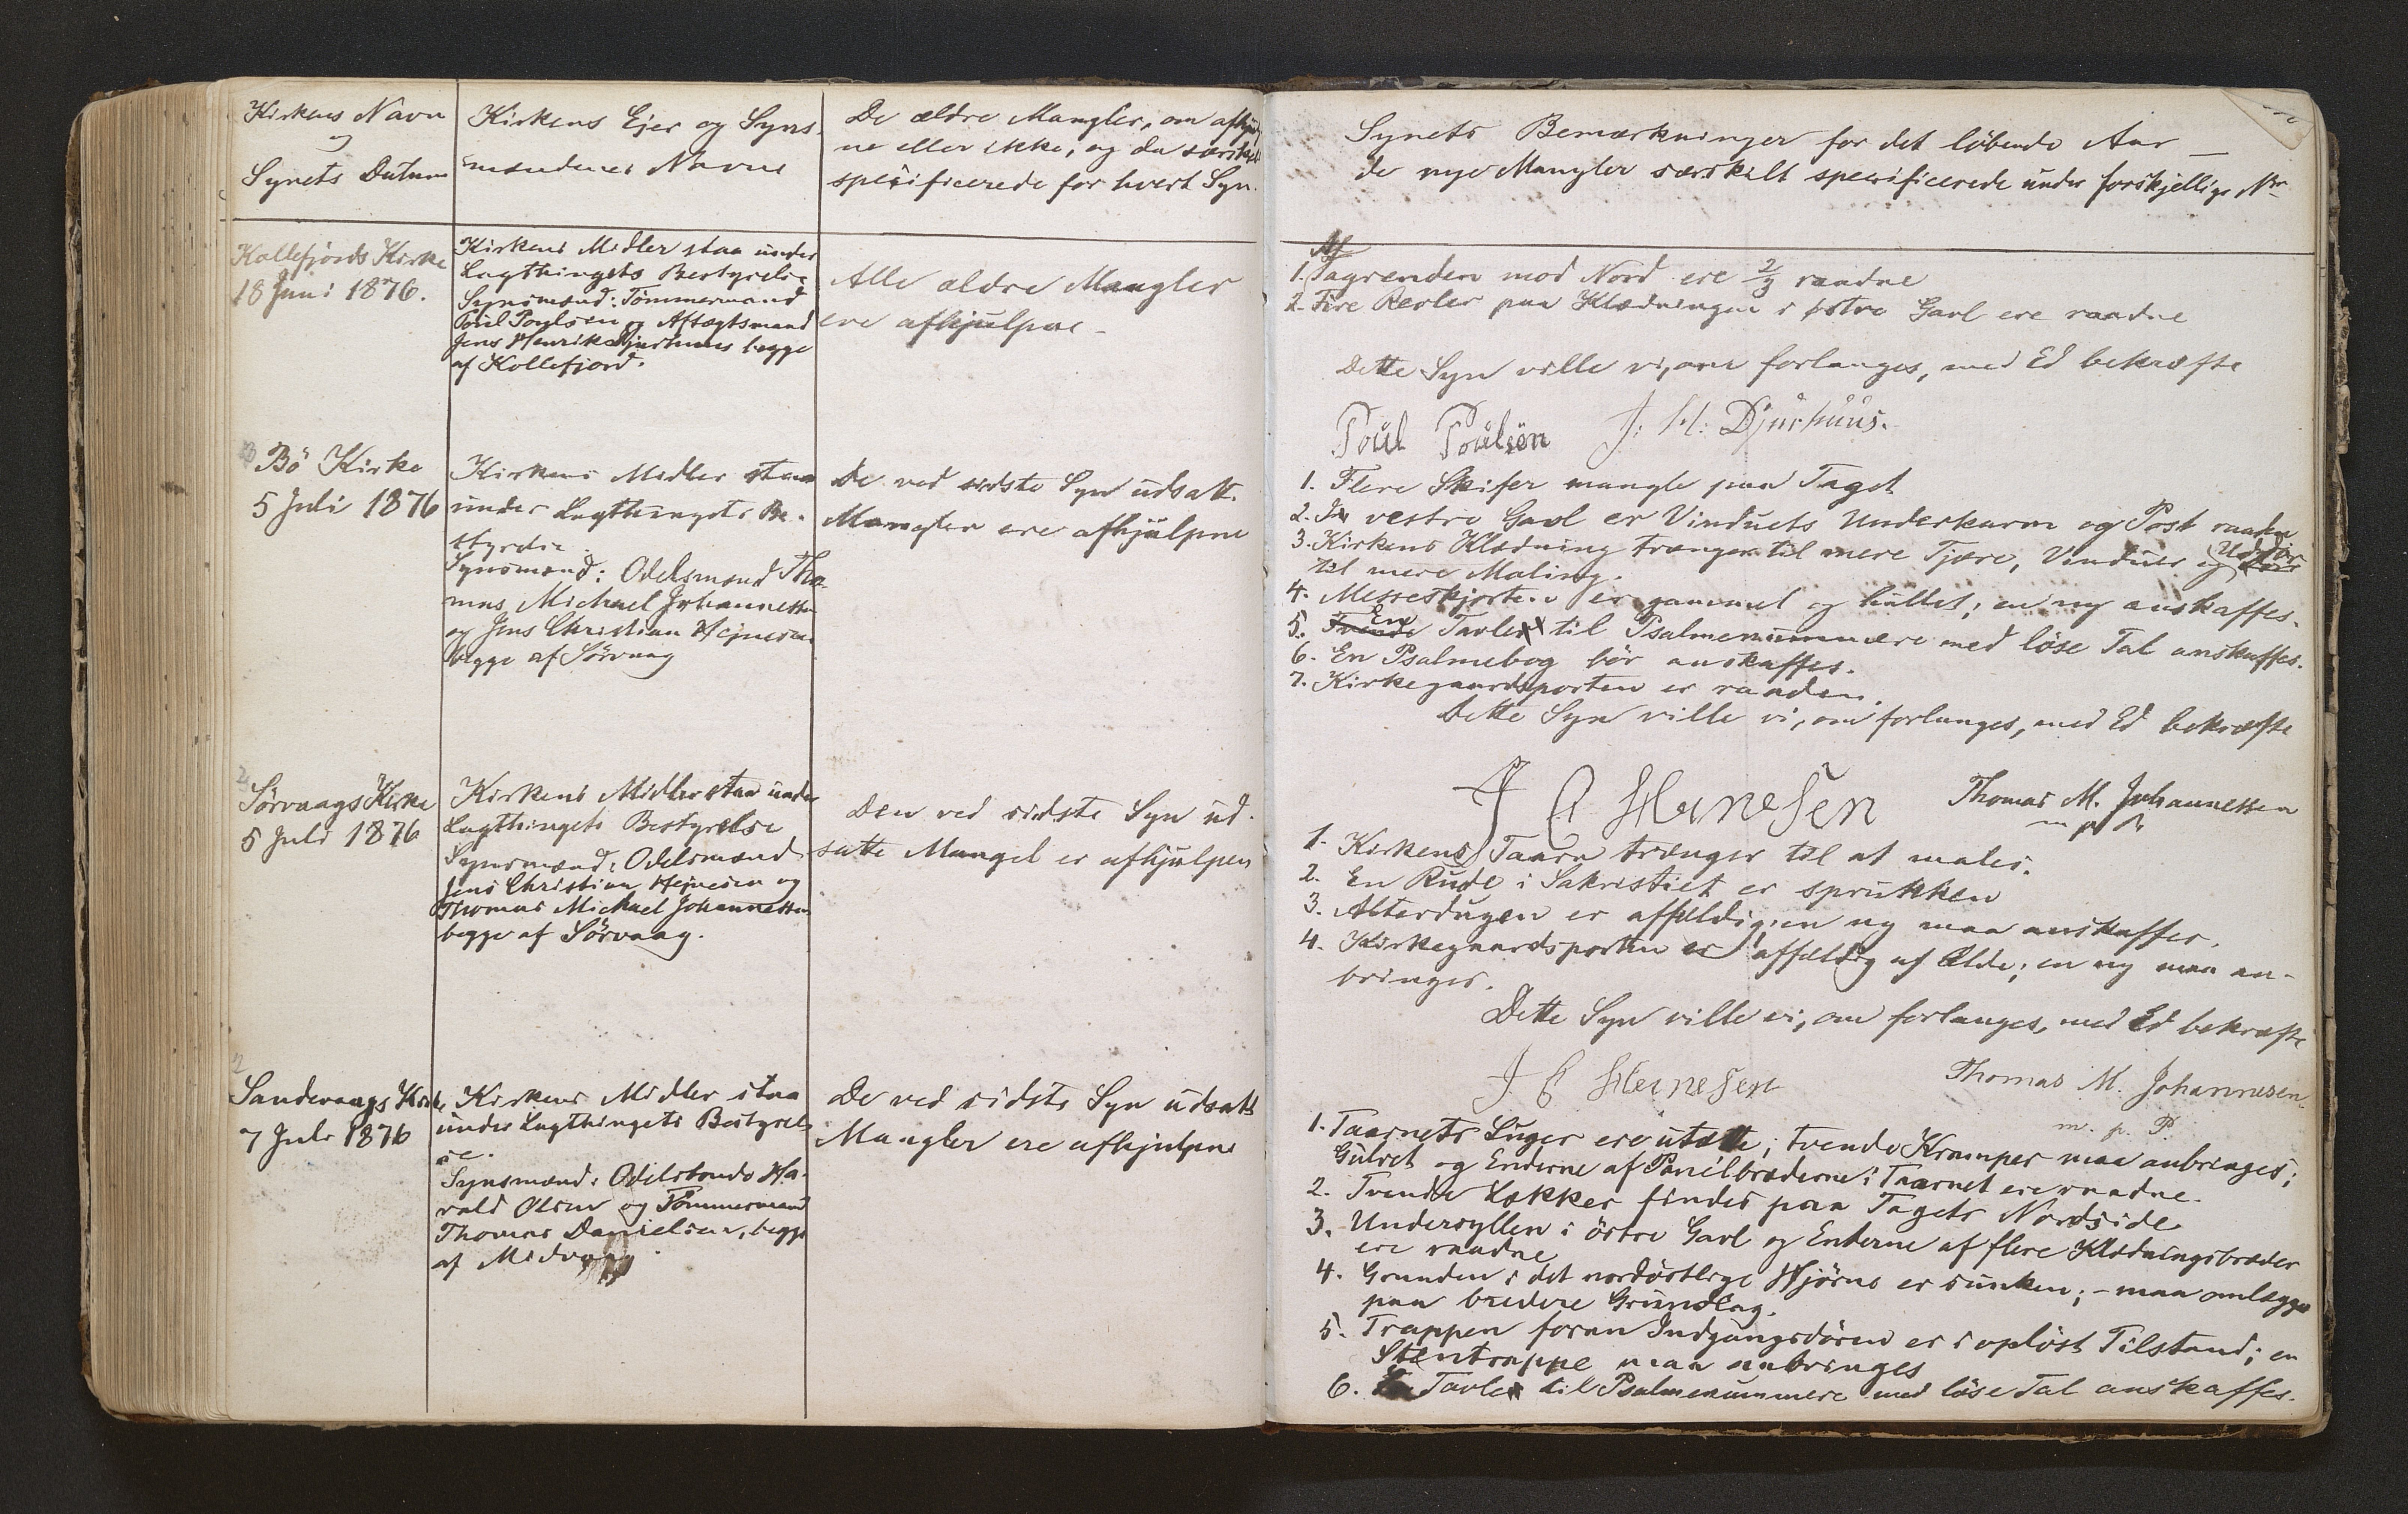 Kirkens Navn
og
Synets Datum
Kirkens Ejer og Syns-
mændenes Navne
De ældre Mangler, om afhjulp
ne eller ikke, og da særskilt
specificerede for hvert Syn.
Kollefjords Kirke
18 Juni 1876.
Kirkens Midler staa under
Lagthingets Bestyrelse
Synsmænd: Tömmermand
Poul Poulsen og Aftægtsmand
Jens Henrik Djurhuus begge
af Kollefjord.
Alle ældre Mangler
ere afhjulpne
Bö Kirke
5 Juli 1876
Kirkens Midler staa
under Lagthingets Be-
styrelse.
Synsmænd: Odelsmænd Tho-
mas Michael Johannessen
og Jens Christian Hejnesen
begge af Sörvaag
De ved sidste Syn udsatte
Mangler ere afhjulpne
Sörvaags Kirke
5 Juli 1876
Kirkens Midler staa under
Lagthingets Bestyrelse
Synsmænd: Odelsmænd
Jens Christian Hejnesen og
Thomas Michael Johannessen
begge af Sörvaag.
Den ved sidste Syn ud-
satte Mangel er afhjulpen
Sandevaags Kirke
7 Juli 1876
Kirkens Midler staa
under Lagthingets Bestyrel-
se.
Synsmænd: Odelsbonde Ha-
rald Olsen og Tömmermand
Thomas Danielsen, begge
af Midvaag.
De ved sidste Syn udsatte
Mangler ere afhjulpne
Synets Bemærkninger for det löbende Aar
de nye Mangler særskilt specificerede under forskjellige Nr.
Af
1. Tagrenden mod Nord ere 2/3 raadne
2. Fire Revler paa Klædningen i östre Gavl ere raadne
Dette Syn ville vi, om forlanges, med Ed bekræfte
Poul Poulsen J: H: Djurhuus.
1. Flere Skifer mangle paa Taget
2. I vestre Gavl er Vinduets Underkarm og Post raadne
3. Kirkens Klædning trænger til mere Tjære, Vinduer og Uddör
til mere Maling.
4. Messeskjorten er gammel og hullet; en ny anskaffes.
5. Tvende En Tavle til Psalmenummere med löse Tal anskaffes.
6. En Psalmebog bör anskaffes.
7. Kirkegaardsporten er raaden.
Dette Syn ville vi, om forlanges, med Ed bekræfte
J C Heinesen Thomas M. Johannessen
m p P
1. Kirkens Taarn trænger til at males.
2. En Rude i Sakristiet er sprukken
3. Alterdugen er affældig; en ny maa anskaffes.
4. Kirkegaardsporten er affældig af Ælde; en ny maa an-
bringes.
Dette Syn ville vi, om forlanges, med Ed bekræfte
J C Heinesen Thomas M. Johannesen
m. p. P.
1. Taarnets Luger ere utætte; tvende Kramper maa anbringes;
Gulvet og Enderne af Panelbræderne i Taarnet ere raadne.
2. Tvende Lækker findes paa Tagets Nordside
3. Undersyllen i östre Gavl og Enderne af flere Klædningsbræder
ere raadne
4. Grunden i det nordöstlige Hjörne er sunken; - maa omlægges
paa bredere Grundlag.
5. Trappen foran Indgangsdören er i oplöst Tilstand; en
Stentrappe maa anbringes
6. Tavle til Psalmenummere med löse Tal anskaffes.